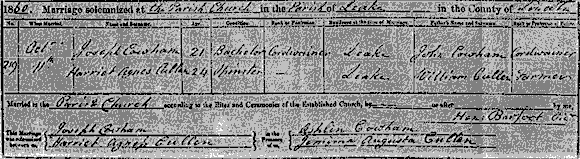 1860. Marriage solemnized at the Parish Church in the Parish of Leake in the County of Lincoln
When Married. Name and Surname. Age Condition Rank or Profession Residence at the time of Marriage. Father's Name and Surname.
219 Octr 11th Joseph Cowham 21 Bachelor Cordwainer Leake John Cowham Cordwainer
Harriet Agnes Cullen 24 Spinster — Leake William Cullen Farmer
Married in the Parish Church according to the Rites and Ceremonies of the Established Church, by or after by me,
Hen: Barfoot
This Marriage was solemnized between us, Joseph Cowham Harriet Agnes Cullen in the Presence of us, Ashlin Cowham Jemima Augusta Cullen